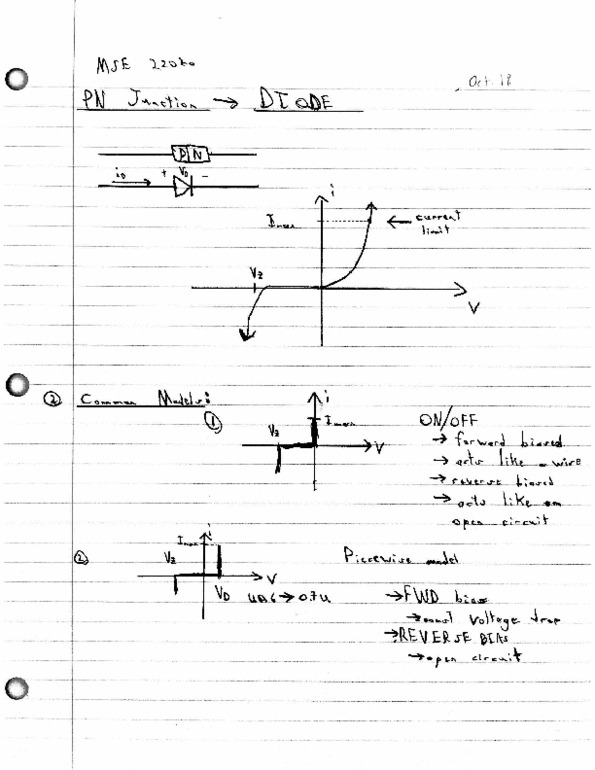 MSE 2202
Oct. 18
PN Junction → DIODE
P N
iD + VD -
i
Imax
← current
limit
VZ
V
② Common Models:
①
i
Imax
VZ
V
ON/OFF
→ forward biased
→ acts like a wire
→ reverse biased
→ acts like an
open circuit
②
i
Imax
VZ
V
VD
→ 0.7V
Piecewise model
→ FWD bias
→ const voltage drop
→ REVERSE BIAS
→ open circuit